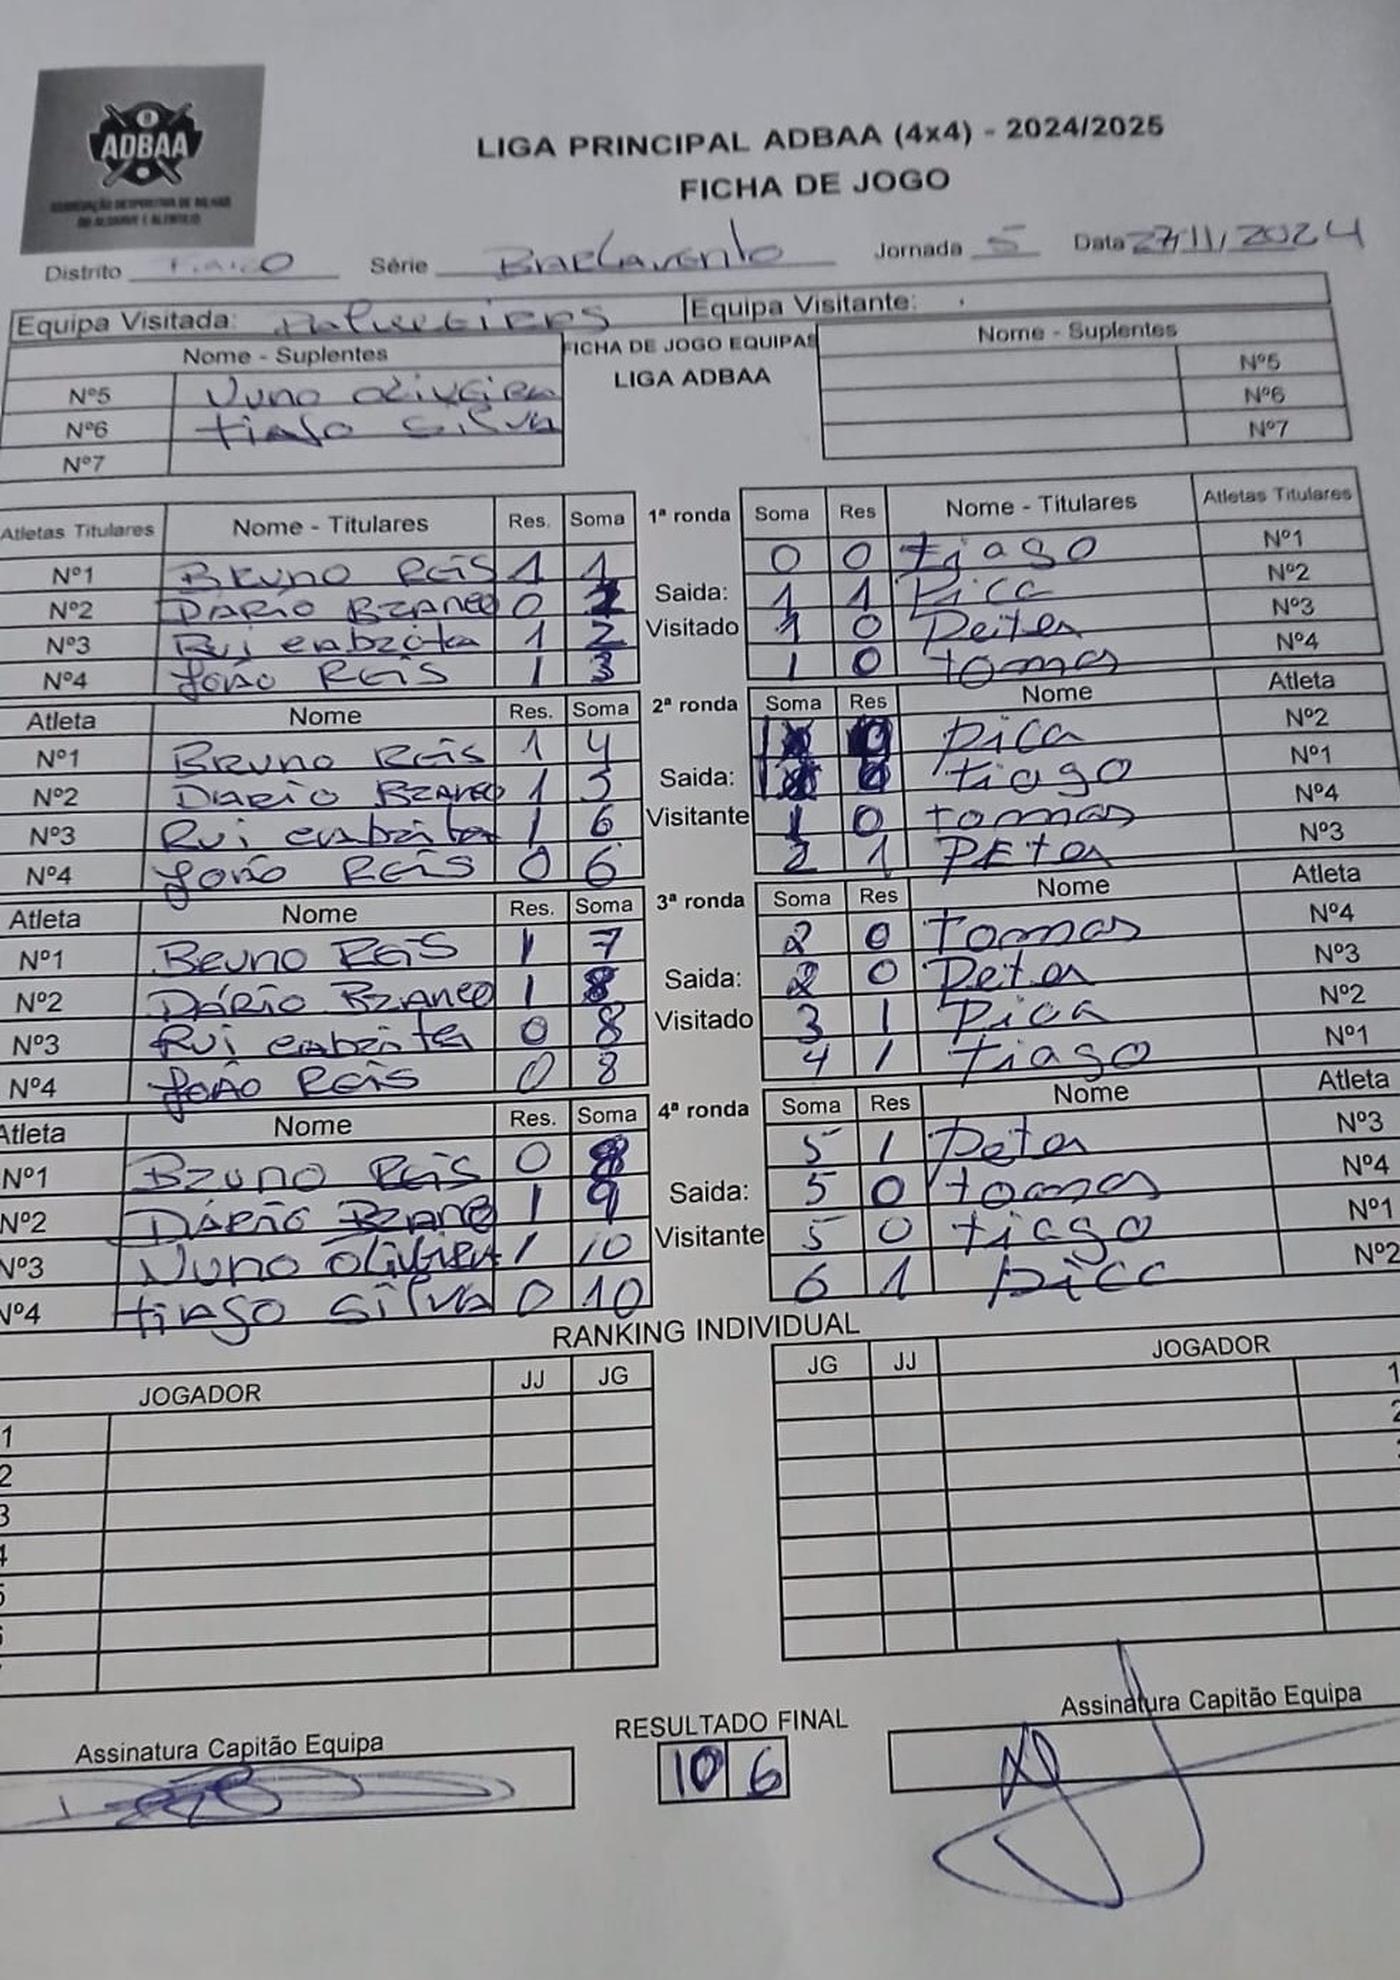 ADBAA
ASSOCIAÇÃO DESPORTIVA DE BILHAR
DO ALGARVE E ALENTEJO
LIGA PRINCIPAL ADBAA (4x4) - 2024/2025
FICHA DE JOGO
Distrito Série Barlavento Jornada 5 Data 27/11/2024
Equipa Visitada: Equipa Visitante:
Nome - Suplentes FICHA DE JOGO EQUIPAS Nome - Suplentes
LIGA ADBAA
Nº5 Nuno Oliveira Nº5
Nº6 tiago Silva Nº6
Nº7 Nº7
Atletas Titulares Nome - Titulares Res. Soma 1ª ronda Soma Res Nome - Titulares Atletas Titulares
Nº1 Bruno Reis 1 1 0 0 tiago Nº1
Nº2 DARIO BRANCO 0 1 Saida: 1 1 Pica Nº2
Nº3 Rui 1 2 Visitado 1 0 Peter Nº3
Nº4 João Reis 1 3 1 0 tomas Nº4
Atleta Nome Res. Soma 2ª ronda Soma Res Nome Atleta
Nº1 Bruno Reis 1 4 1 0 pica Nº2
Nº2 Dario Branco 1 5 Saida: 1 0 tiago Nº1
Nº3 Rui 1 6 Visitante 1 0 tomas Nº4
Nº4 João Reis 0 6 2 1 PEter Nº3
Atleta Nome Res. Soma 3ª ronda Soma Res Nome Atleta
Nº1 Bruno Reis 1 7 2 0 tomas Nº4
Nº2 Dário Branco 1 8 Saida: 2 0 Peter Nº3
Nº3 Rui 0 8 Visitado 3 1 pica Nº2
Nº4 João Reis 0 8 4 1 tiago Nº1
Atleta Nome Res. Soma 4ª ronda Soma Res Nome Atleta
Nº1 Bruno Reis 0 8 5 1 Peter Nº3
Nº2 Dário Branco 1 9 Saida: 5 0 tomas Nº4
Nº3 Nuno Oliveira 1 10 Visitante 5 0 tiago Nº1
Nº4 tiago Silva 0 10 6 1 pica Nº2
RANKING INDIVIDUAL
JOGADOR JJ JG JG JJ JOGADOR
1 1
2 2
3
4
5
Assinatura Capitão Equipa RESULTADO FINAL Assinatura Capitão Equipa
10 6